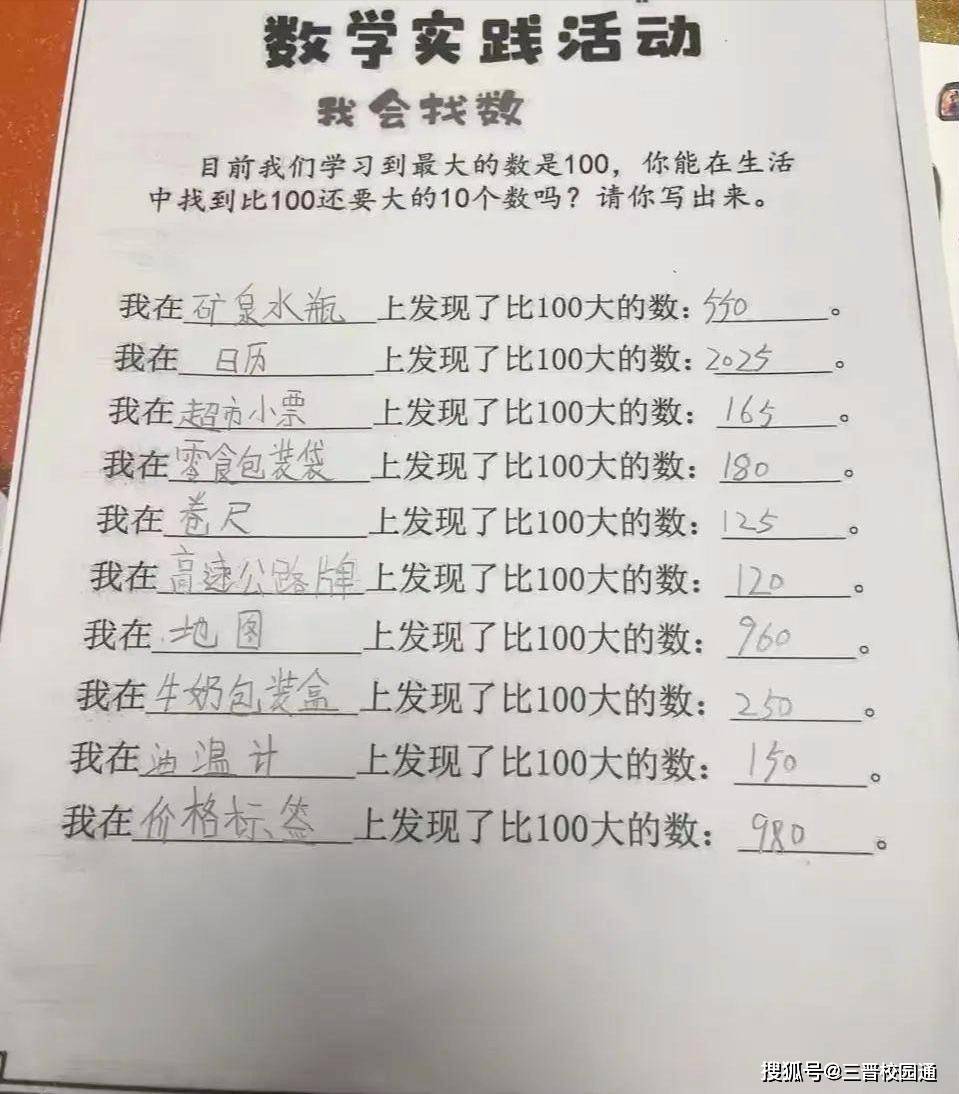 数学实践活动
我会找数
目前我们学习到最大的数是100，你能在生活
中找到比100还要大的10个数吗？请你写出来。
我在矿泉水瓶上发现了比100大的数：550。
我在日历上发现了比100大的数：2025。
我在超市小票上发现了比100大的数：165。
我在零食包装袋上发现了比100大的数：180。
我在卷尺上发现了比100大的数：125。
我在高速公路牌上发现了比100大的数：120。
我在地图上发现了比100大的数：960。
我在牛奶包装盒上发现了比100大的数：250。
我在油温计上发现了比100大的数：150。
我在价格标签上发现了比100大的数：980。
搜狐号@三晋校园通